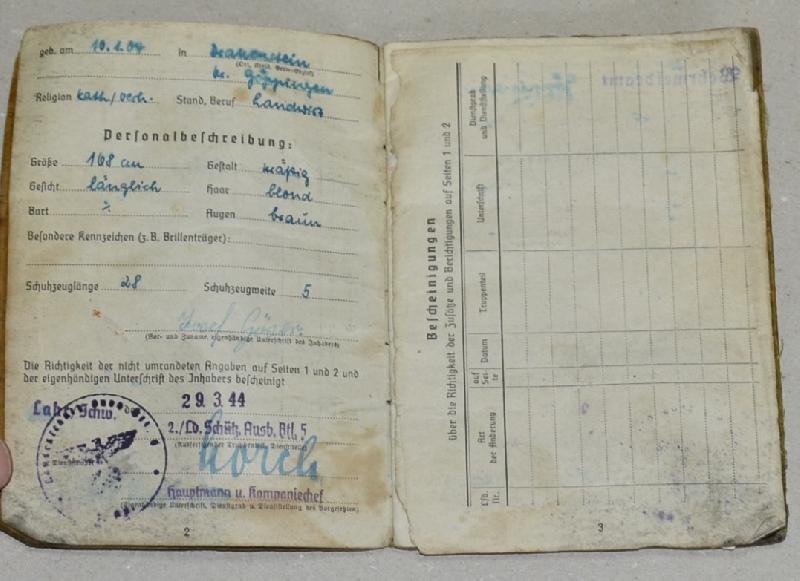 geb. am 10.1.04 in Drackenstein
(Ort, Kreis, Verw.-Bezirk)
Kr. Göppingen
Religion kath./verh. Stand, Beruf Landwirt
Personalbeschreibung:
Größe 168 cm Gestalt mäßig
Gesicht länglich Haar blond
Bart ./. Augen braun
Besondere Kennzeichen (z.B. Brillenträger):
Schuhzeuglänge 28 Schuhzeugweite 5
Josef
(Vor- und Zuname, eigenhändige Unterschrift des Inhabers)
Die Richtigkeit der nicht umrandeten Angaben auf Seiten 1 und 2 und
der eigenhändigen Unterschrift des Inhabers bescheinigt
Lahr, Schw. 29.3.44
2./Ld. Schütz. Ausb. Btl. 5
Hauptmann u. Kompaniechef
(Eigenhändige Unterschrift, Dienstgrad u. Dienststellung des Vorgesetzten)
2
Bescheinigungen
über die Richtigkeit der Zusätze und Berichtigungen auf Seiten 1 und 2
Lfd. Nr.
Art der Änderung
auf Sei- te
Datum
Truppenteil
Unterschrift
Dienstgrad und Dienststellung
3